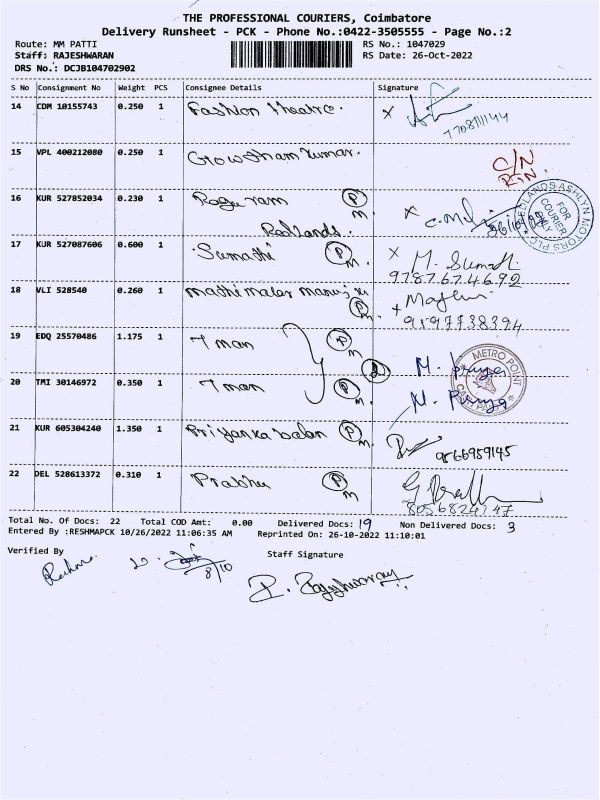 THE PROFESSIONAL COURIERS, Coimbatore
Delivery Runsheet - PCK - Phone No.:0422-3505555 - Page No.:2
Route: MM PATTI RS No.: 1047029
Staff: RAJESHWARAN RS Date: 26-Oct-2022
DRS No.: DCJB104702902
S No Consignment No Weight PCS Consignee Details Signature
14 CDM 10155743 0.250 1 Fashion theatre.
15 VPL 400212080 0.250 1 Gowtham Kumar. C/N
RTN.
16 KUR 527852034 0.230 1 Raguram P
M.
Redlands.
REDLANDS ASHLYN MOTORS PLC
FOR COURIER ONLY
17 KUR 527087606 0.600 1 Sumathi P M. M. Sumathi
9787674692
18 VLI 528540 0.260 1 P M.
9597738394
19 EDQ 25570486 1.175 1 7 man P M 2
METRO POINT
20 TMI 30146972 0.350 1 7 man P M. M. Priya
21 KUR 605304240 1.350 1 Priyanka balan P M. 9566959145
22 DEL 528613372 0.310 1 Prabhu P M
8056824747
Total No. Of Docs: 22 Total COD Amt: 0.00 Delivered Docs: 19 Non Delivered Docs: 3
Entered By :RESHMAPCK 10/26/2022 11:06:35 AM Reprinted On: 26-10-2022 11:10:01
Verified By Staff Signature
Reshma.
8/10